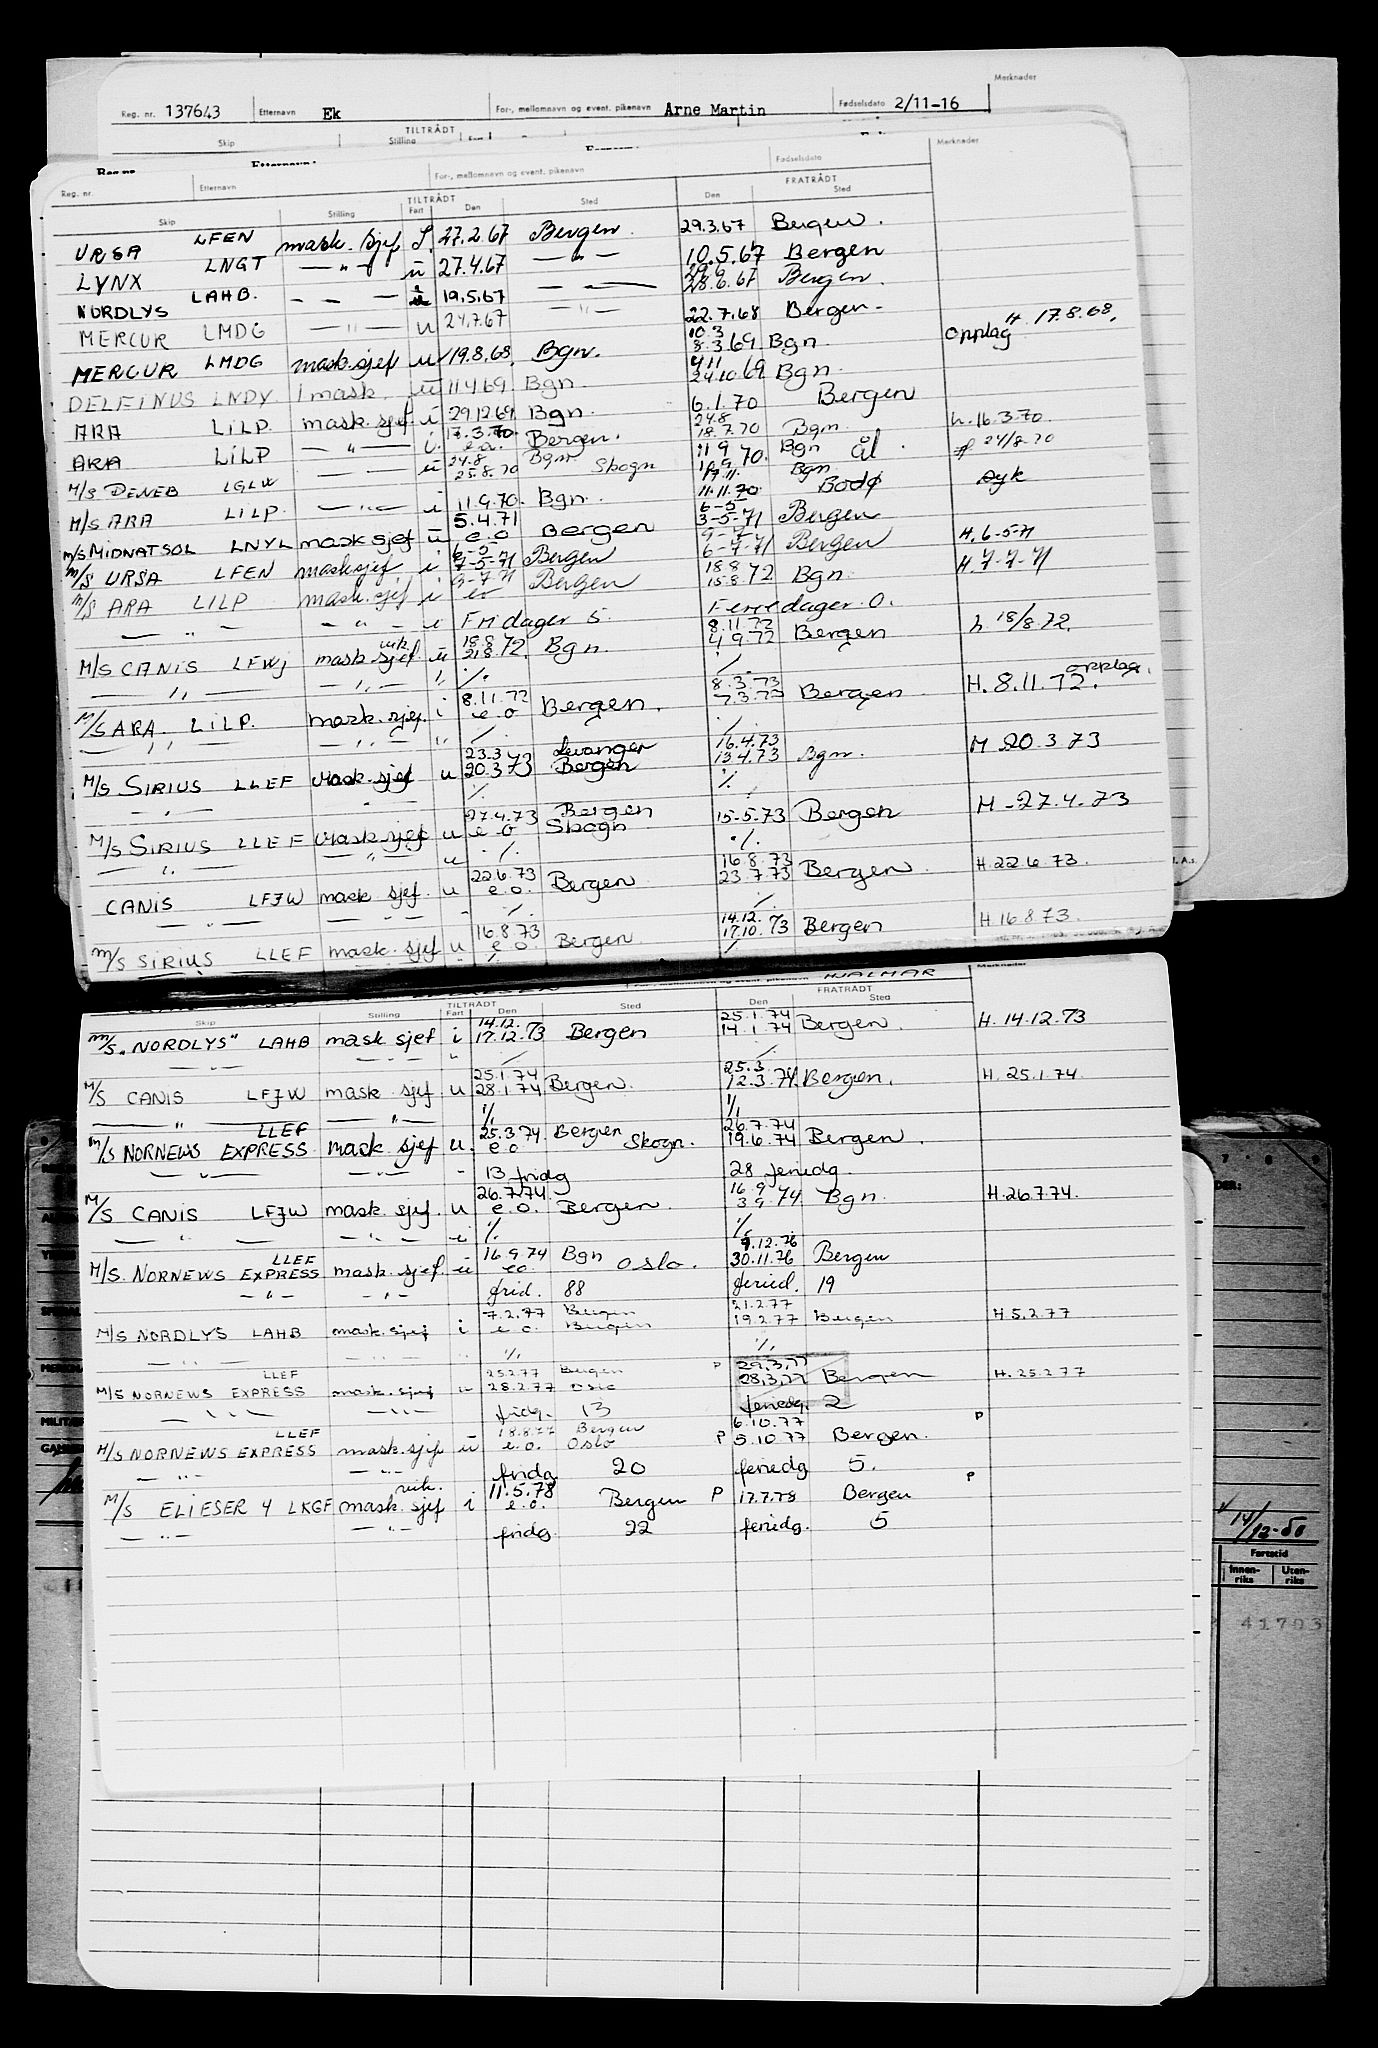 Merknader
Reg. nr. 137643 Etternavn Ek For-, mellomnavn og event. pikenavn Arne Martin Fødselsdato 2/11-16
Skip TILTRÅDT Stilling
Reg. nr. Etternavn For-, mellomnavn og event. pikenavn Fødselsdato Merknader
TILTRÅDT FRATRÅDT
Skip Stilling Fart Den Sted Den Sted
URSA LFEN mask. sjef 27.2.67 Bergen. 29.3.67 Bergen.
LYNX LNGT — " — u 27.4.67 — " — 10.5.67 Bergen
29.6
NORDLYS LAHB. — — — 19.5.67 — 28.6.67 Bergen.
MERCUR LMDG — " — u 24.7.67 — " — 22.7.68 Bergen. Opplag H. 17.8.68.
10.3
MERCUR LMDG mask. sjef u 19.8.68. Bgn. 8.3.69 Bgn.
4.11
DELFINUS LNDY 1 mask. u 11.4.69 Bgn. 24.10.69 Bgn.
ARA LILP. mask. sjef. i 29.12.69 Bgn. 6.1.70 Bergen
17.3.70. 24.8
ARA LILP — " — i. e.o. Bergen. 18.7.70 Bgn. h. 16.3.70.
24.8. Bgn. 11.9 Bgn
M/S DENEB LGLW — — u 25.8.70 Skogn 70. ål. 24/8-70
Bgn
M/S ARA LILP. — " — i 11.9.70. Bgn. 11.11.70 Bodø syk
5.4.71 6-5
M/S MIDNATSOL LNYL mask sjef u e.o Bergen 3-5-71 Bergen
6-5 9-7-
M/S URSA LFEN mask sjef i 7-5-71 Bergen 6-7-71 Bergen H. 6-5-71
9-7-71 18.8
M/S ARA LILP mask. sjef i eo Bergen 15.8.72 Bgn. H. 7-7-71
— " — — " — Fridager 5. Feriedager. 0.
vik. 18.8 8.11.72
M/S CANIS LFWJ mask sjef u 21.8.72. Bgn. 4.9.72 Bergen h 18/8.72.
— " — — " — " %. %.
8.11.72 8.3.73 opplag.
M/S ARA. LILP. mask. sjef. i e.o Bergen. 7.3.73 Bergen H. 8.11.72.
— " — — " — " %. %.
23.3 Levanger 16.4.73
M/S SIRIUS LLEF mask-sjef u 20.3.73 Bergen 13.4.73 Bgn. M 20.3.73
— " — " %. %.
27.4.73 Bergen
M/S SIRIUS LLEF mask-sjef u e o Skogn 15-5.73 Bergen M-27.4.73
— " — — " — u %. %.
22.6.73 16.8.73
CANIS LFJW mask sjef. u e.o. Bergen 23.7.73 Bergen. H. 22.6.73.
— " — — " — - %. %.
16.8.73 14.12.
M/S SIRIUS LLEF mask. sjef u e o Bergen 17.10.73 Bergen H 16.8.73.
" %. %
For-, mellomnavn og event. pikenavn HJALMAR Merknader
TILTRÅDT FRATRÅDT
Skip Stilling Fart Den Sted Den Sted
14.12. 25.1.74
M/S „NORDLYS" LAHB mask sjef i 17.12.73 Bergen 14.1.74 Bergen. H. 14.12.73
— " — " %. %.
25.1.74 25.3.
M/S CANIS LFJW mask. sjef. u 28.1.74 Bergen. 12.3.74. Bergen. H. 25.1.74.
— " — — " — %. %.
LLEF 25.3.74 Bergen 26.7.74
M/S NORNEWS EXPRESS mask sjef u. e o Skogn. 19.6.74 Bergen.
— " — — " — - 13 fridg 28 feriedg.
26.7.74. 16.9
M/S CANIS LFJW mask. sjef. u e.o. Bergen. 3.9.74 Bgn. H. 26.7.74.
— " — — " — %. %.
LLEF 16.9.74 Bgn 9.12.76
M/S. NORNEWS EXPRESS mask. sjef u eo. oslo. 30.11.76 Bergen
— " — — " — frid. 88 feried. 19
7.2.77 Bergen 21.2.77
M/S NORDLYS LAHB mask. sjef i e.o. Bergen 19.2.77 Bergen H 5.2.77
— " — — " — %. %.
LLEF 25.2.77 Bergen P 29.3.77
M/S NORNEWS EXPRESS mask. sjef u 28.2.77 oslo 28.3.77 Bergen H. 25.2.77
— " — — " — fridg. 13 feriedg. 2
LLEF 18.8.77 Bergen 6.10.77 P
M/S NORNEWS EXPRESS mask. sjef u e.o. Oslo P 5.10.77 Bergen.
— " — — " — fridg 20 feriedg 5. P
vik. 11.5.78
M/S ELIESER 4 LKGF mask. sjef i e.o. Bergen P 17.7.78 Bergen
— " — — " — fridg. 22 feriedg. 5
14/12-50
Fartstid
Innenriks Utenriks
41703